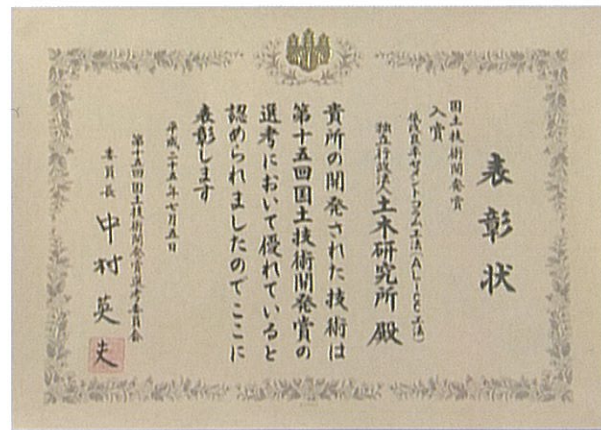 表彰状
国土技術開発賞
入賞
低改良率セメントコラム工法(ALiCC工法)
独立行政法人土木研究所 殿
貴所の開発された技術は
第十五回国土技術開発賞の
選考において優れていると
認められましたのでここに
表彰します
平成二十五年七月五日
第十五回国土技術開発賞選考委員会
委員長 中村英夫